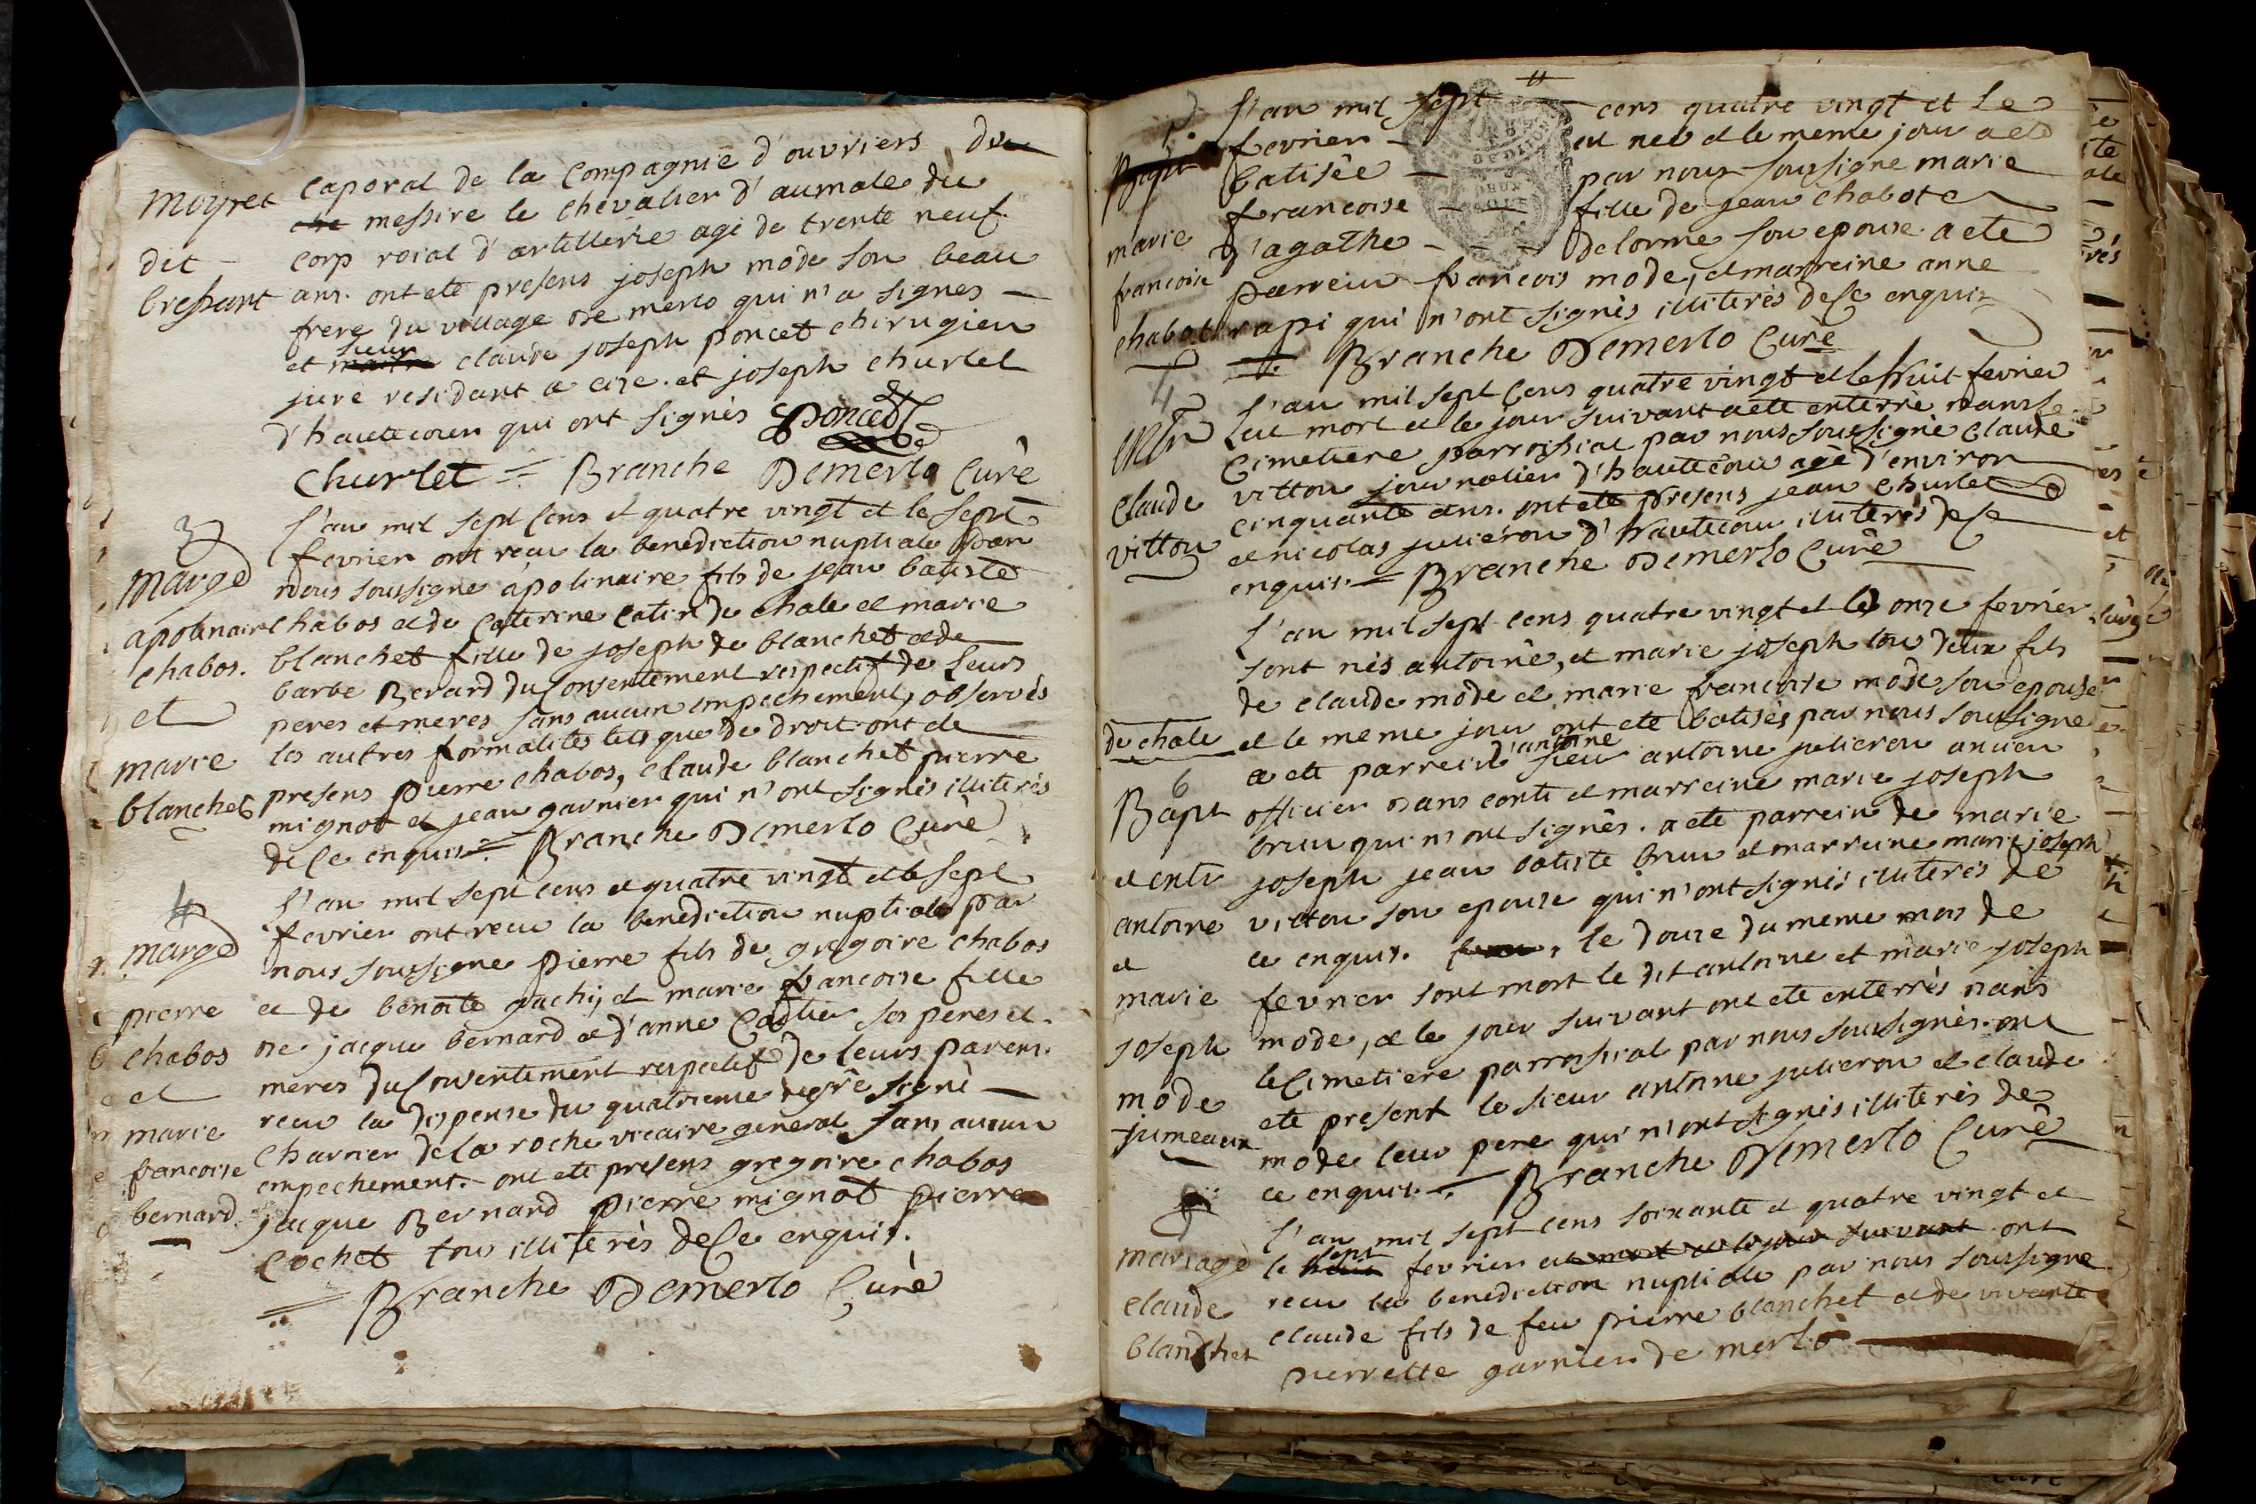 moyret
dit
bressant
caporal de la Compagnie d'ouvriers du
messire le chevalier d'aumale du
corp roial d'artillerie agé de trente neuf
ans. ont ete presens joseph mode son beau
frere du village de merlo qui n'a signes
et sieur claude joseph poncet chirugien
juré residant a cize. et joseph churlet
d'hautecour qui ont signés Poncet
Churlet = Branche Demerlo Curè
3
marge
apolinaire
chabos.
et
marie
blanchet
l'an mil sept cens et quatre vingt et le sept
fevrier ont recu la benediction nuptiale par
nous soussigne apolinaire fils de jean batiste
chabos et de caterine catin de chale et marie
blanchet fille de joseph de blanchet et de
barbe Berard du consentement respectif de leurs
peres et meres sans aucun empechement, observés
les autres formalités tels que de droit. ont ete
presens pierre chabos, claude blanchet pierre
mignot et jean garnier qui n'ont signés illiterés
de ce enquis = Branche Demerlo Curè
4
marge
pierre
chabos
et
marie
francoise
bernard
l'an mil sept cens et quatre vingt et le sept
fevrier ont recu la benediction nuptiale par
nous soussigne pierre fils de gregoire chabos
et de benoite guchi, et marie francoise fille
de jacque bernard et d'anne ses peres et
meres du consentement respectif de leurs parens.
recu la dispense du quatrieme degré signé
charnier de la roche vicaire general sans aucun
empechement. ont ete presens gregoire chabos
jacque Bernard pierre mignot pierre
cochet tou illiterès de ce enquis.
Branche Demerlo Curè
5
Bapt
marie
francoise
chabot
l'an mil sept cens quatre vingt et le
fevrier est neé et le meme jour a eté
batisèe par nous soussigne marie
francoise fille de jean chabot et
d'agathe delorme son epouse. a ete
parrein francois mode, et marreine anne
rapi qui n'ont signés illiterés de ce enquis
Branche Demerlo Curè
4
entr
claude
vitton
l'an mil sept cens quatre vingt et le huit fevrier
est mort et le jour suivant a ete enterre dans le
cimetiere parroissial par nous soussigné claude
vitton journalier d'hautecour agé d'environ
cinquante ans. ont ete presens jean churlet
et nicolas juliéron d'hautecour illiterés de ce
enquis. = Branche Demerlo Curè
de chale
6
Bapt
et entr
antoine
et
marie
joseph
mode
jumeaux
l'an mil sept cens quatre vingt et le onze fevrier
sont nés antoine, et marie joseph tou deux fils
de claude mode et marie francoise mode son epouse
et le meme jour ont ete batisés par nous soussigne
a ete parrein d'antoine sieur antoine julieron ancien
officier dans conti et marreine marie joseph
brun qui n'ont signés. a ete parrein de marie
joseph jean batiste brun et marreine marie joseph
vitton son epouse qui n'ont signés illiterés de
ce enquis. le douze du meme mois de
fevrier sont mort le dit antoine et marie joseph
mode, et le jour suivant ont ete enterrès dans
le Cimetiere parrossial par nous soussignés. ont
ete present le sieur antoine julieron et claude
mode leur pere qui n'ont signés illiterés de
ce enquis. = Branche Demerlo Curè
mariage
claude
blanchet
l'an mil sept cens soixante et quatre vingt et
le sept fevrier est mort et le jour suivant ont
recu la benediction nuptiale par nous soussigne
claude fils de feu pierre blanchet et de vivante
pierrette garnier de merlo